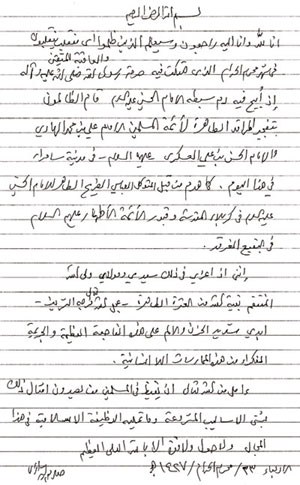 بسم الله الرحمن الرحيم
انا لله وانا اليه راجعون وسيعلم الذين ظلموا اي منقلب ينقلبون
والعاقبة للمتقين
في شهر محرم الحرام الذي هتكت فيه حرمة رسول الله صلى الله عليه وآله
إذ أبيح فيه دم سبطه الامام الحسين عليه السلام قام الظالمون
بتفجير المراقد الطاهرة لأئمة المسلمين الامام علي بن محمد الهادي
والامام الحسن بن علي العسكري عليهما السلام - في مدينة سامراء
في هذا اليوم . كما هدم من قبل المتوكل العباسي الضريح الطاهر للامام الحسين
عليه السلام في كربلاء المقدسة وقبور الأئمة الأطهار عليهم السلام
في البقيع الغرقد .
إنني اذ اعزي في ذلك سيدي ومولاي ولي الله
المنتقم بقية الله من العترة الطاهرة - عجل الله تعالى فرجه الشريف -
ابدي شديد الحزن والالم على هذه الفاجعة العظيمة والجريمة
النكراء من هذه الممارسات اللاانسانية .
وعلى الله تعالى ان يقيض في المسلمين من يصدون امثال ذلك
بشتى الاساليب المشروعة وما تمليه الوظيفة الاسلامية في هذا
المجال ولا حول ولا قوة الا بالله العلي العظيم
الاربعاء / ٢٣ / محرم الحرام / ١٤٢٧ هـ